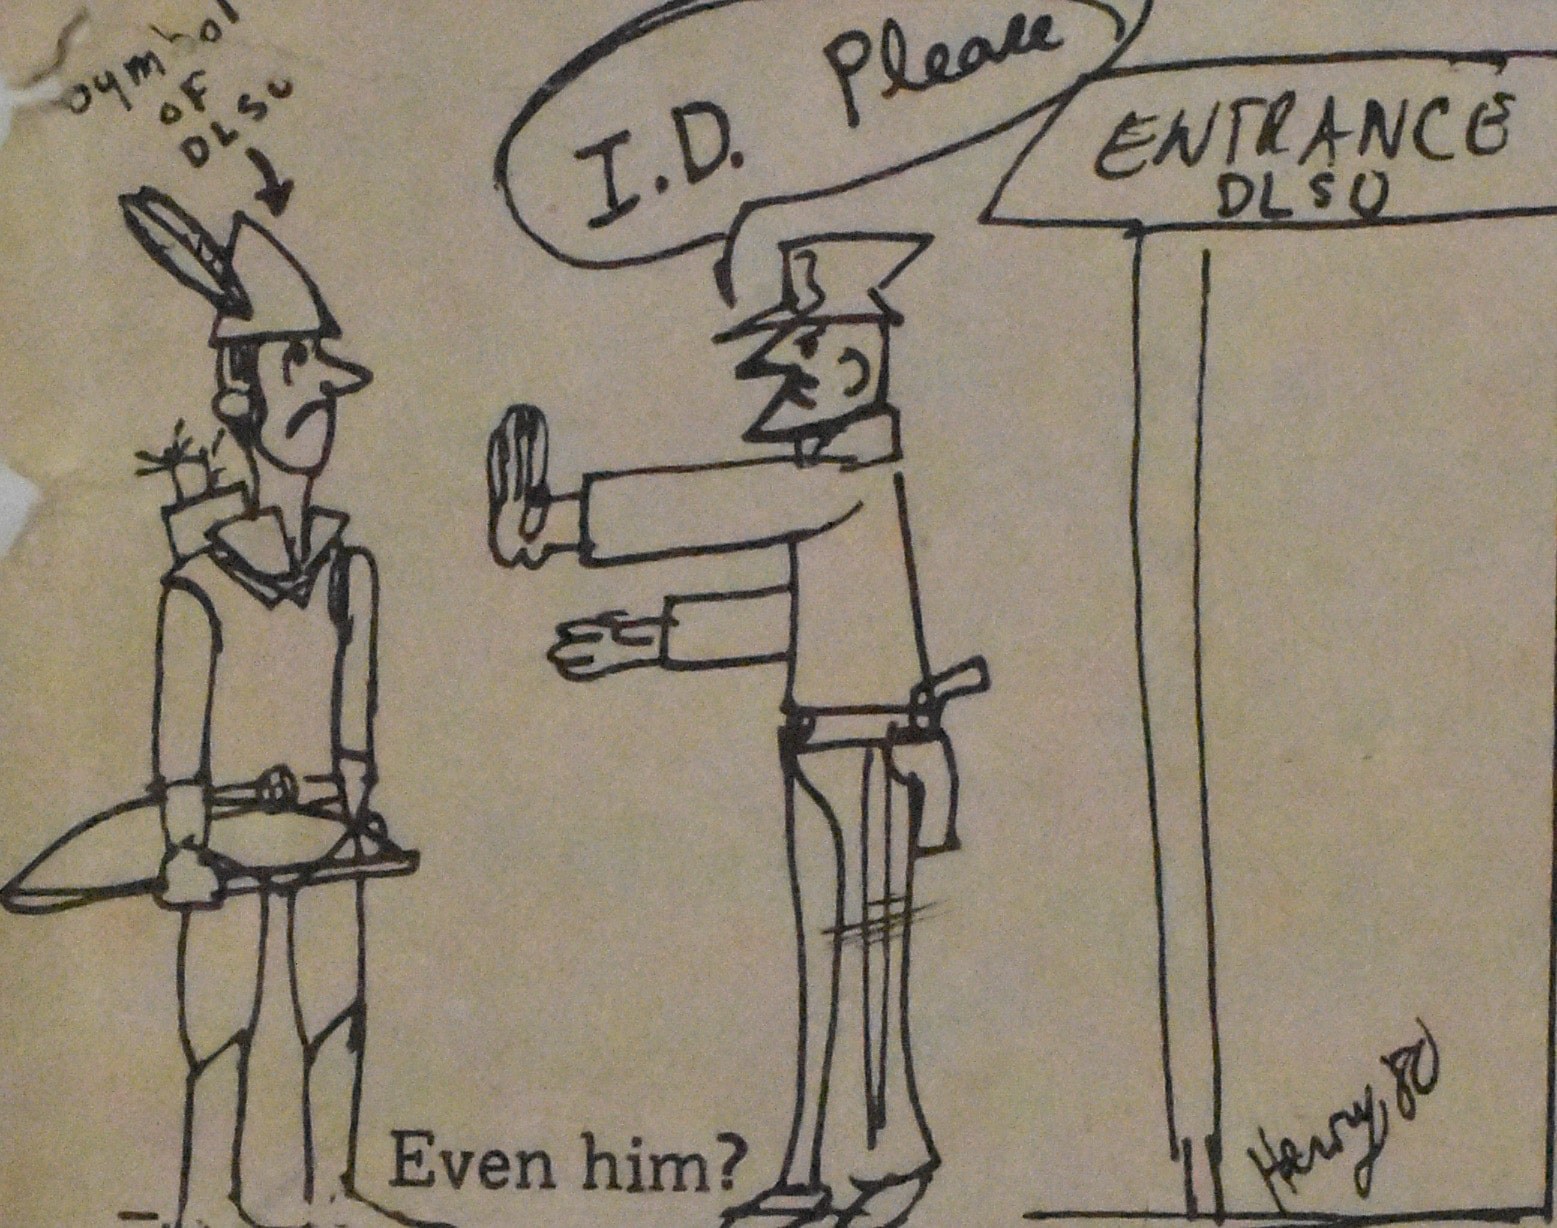 symbol
OF
DLSU
I.D. Please
ENTRANCE
DLSU
Even him?
Henry, '80